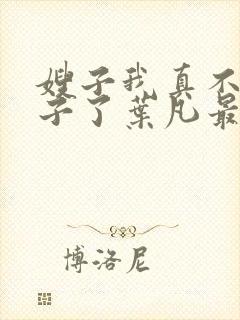 嫂子我真不
子了葉凡最
博洛尼